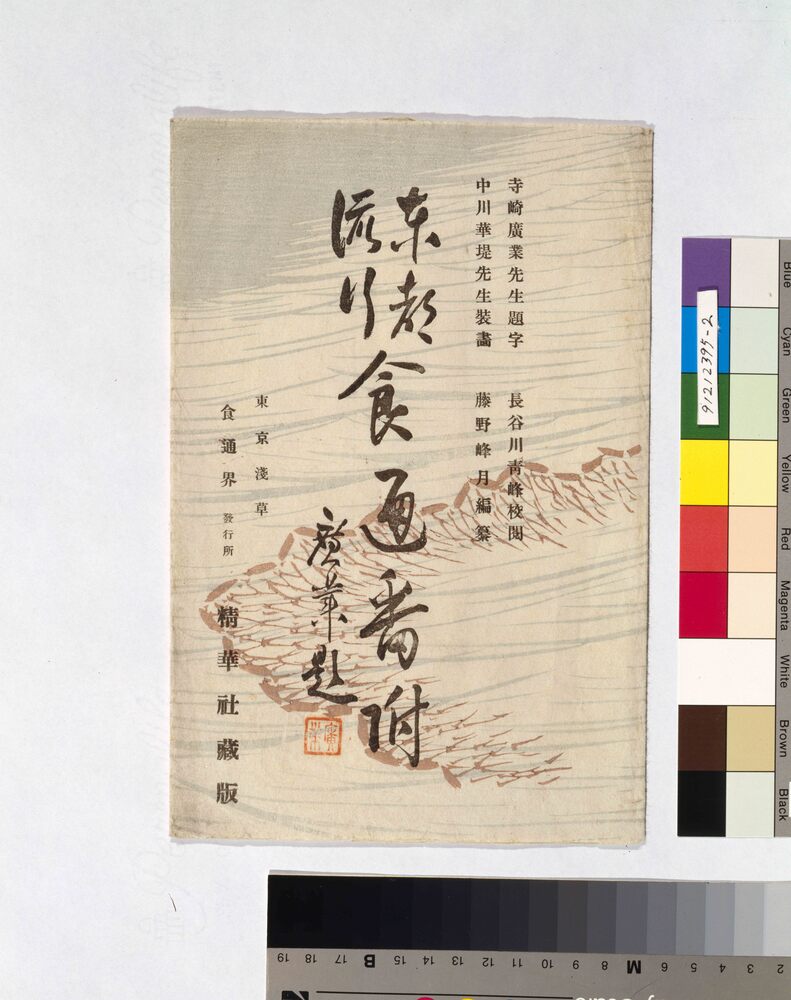 寺崎廣業先生題字
長谷川青峰校閲
中川華堤先生裝畵
藤野峰月編纂
東都
流行
食通番附
廣業題
廣業
東京淺草
食通界發行所
精華社藏版
91212395-2
Blue
Cyan
Green
Yellow
Red
Magenta
White
Brown
Black
19 18 17 B 15 14 13 12 11 10 9 8 M 6 5 4 3 2